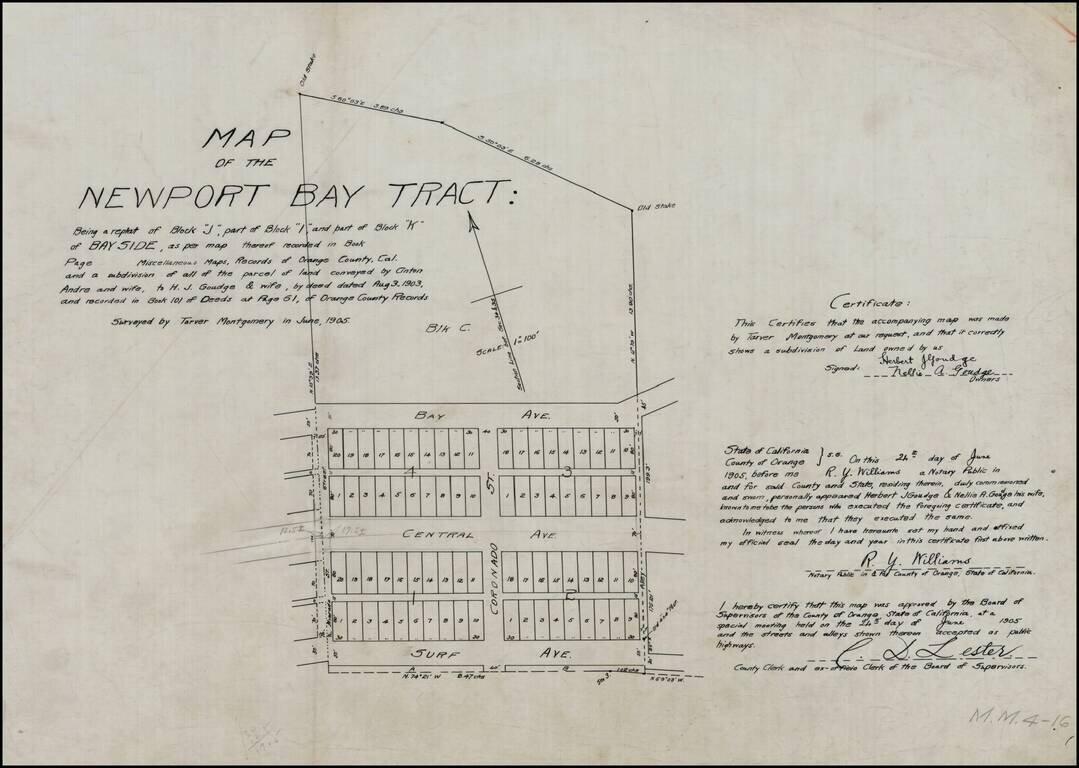 MAP
OF THE
NEWPORT BAY TRACT:
Being a replat of Block "J", part of Block "I," and part of Block "K"
of BAYSIDE, as per map thereof recorded in Book
Page Miscellaneous Maps, Records of Orange County, Cal.
and a subdivision of all of the parcel of land conveyed by
Andre and wife, to H. J. Goudge & wife, by deed dated Aug 3, 1903,
and recorded in Book 101 of Deeds at Page 61, of Orange County Records
Surveyed by Tarver Montgomery in June, 1905.
Old Stake
Old Stake
Blk C.
SCALE 1"=100'
BAY AVE.
20 19 18 17 16 15 14 13 12 11
18 17 16 15 14 13 12 11 10
4
3
1 2 3 4 5 6 7 8 9 10
1 2 3 4 5 6 7 8 9
CENTRAL AVE.
CORONADO ST.
20 19 18 17 16 15 14 13 12 11
18 17 16 15 14 13 12 11 10
1
2
1 2 3 4 5 6 7 8 9 10
1 2 3 4 5 6 7 8 9
SURF AVE.
A
B
N. 74°21' W 8.47 chs
Certificate:
This Certifies that the accompanying map was made
by Tarver Montgomery at our request, and that it correctly
shows a subdivision of Land owned by us
Signed: Herbert J Goudge
Nellie A Goudge
Owners
State of California
County of Orange } s.s. On this 24th day of June
1905, before me R. Y. Williams a Notary Public in
and for said County and State, residing therein, duly commissioned
and sworn, personally appeared Herbert J Goudge & Nellie A. Goudge his wife,
known to me to be the persons who executed the foregoing certificate, and
acknowledged to me that they executed the same.
In witness whereof I have hereunto set my hand and affixed
my official seal the day and year in this certificate first above written.
R. Y. Williams
Notary Public in & for County of Orange, State of California.
I hereby certify that this map was approved by the Board of
Supervisors of the County of Orange, State of California, at a
special meeting held on the 24th day of June 1905
and the streets and alleys shown thereon accepted as public
highways.
C. D. Lester
County Clerk and ex-officio Clerk of the Board of Supervisors.
M.M. 4-16